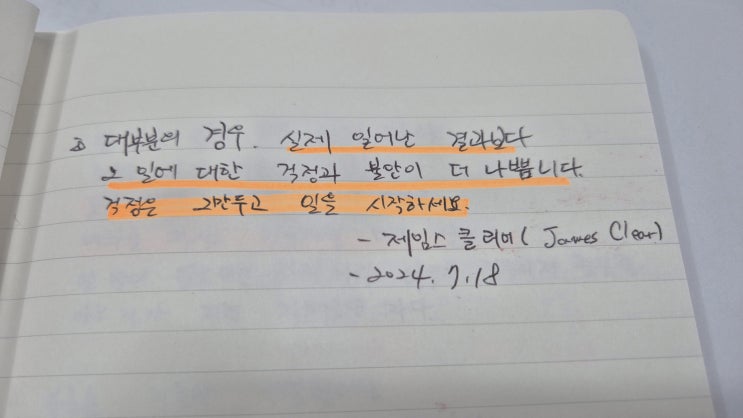 ② 대부분의 경우. 실제 일어난 결과보다
그 일에 대한 걱정과 불안이 더 나쁩니다.
걱정은 그만두고 일을 시작하세요.
- 제임스 클리어 ( James Clear)
- 2024. 7. 18